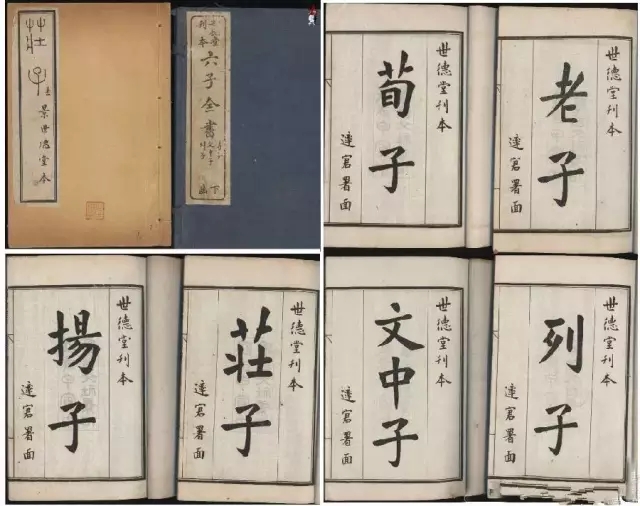 莊子
景世德堂本
世德堂
刊本
六子全書
下函
世德堂刊本
荀子
達署面
世德堂刊本
老子
達署面
世德堂刊本
揚子
達署面
世德堂刊本
莊子
達署面
世德堂刊本
文中子
達署面
世德堂刊本
列子
達署面